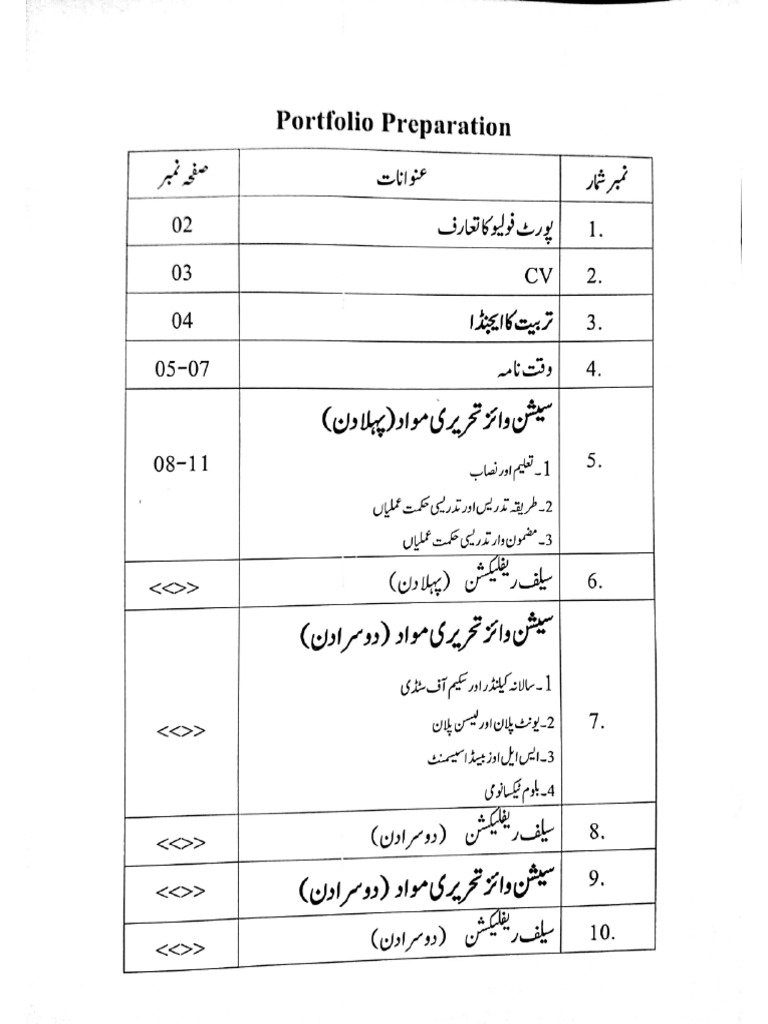 Portfolio Preparation
نمبر شمار عنوانات صفحہ نمبر
1. پورٹ فولیو کا تعارف 02
2. CV 03
3. تربیت کا ایجنڈا 04
4. وقت نامہ 05-07
5. سیشن وائز تحریری مواد (پہلا دن) 08-11
1۔ تعلیم اور نصاب
2۔ طریقہ تدریس اور تدریسی حکمت عملیاں
3۔ مضمون وار تدریسی حکمت عملیاں
6. سیلف ریفلیکشن (پہلا دن) <<>>
7. سیشن وائز تحریری مواد (دوسرا دن) <<>>
1۔ سالانہ کیلنڈر اور سکیم آف سٹڈی
2۔ یونٹ پلان اور لیسن پلان
3۔ ایس ایل اوز بیسڈ اسیسمنٹ
4۔ بلوم ٹیکسانومی
8. سیلف ریفلیکشن (دوسرا دن) <<>>
9. سیشن وائز تحریری مواد (دوسرا دن) <<>>
10. سیلف ریفلیکشن (دوسرا دن) <<>>